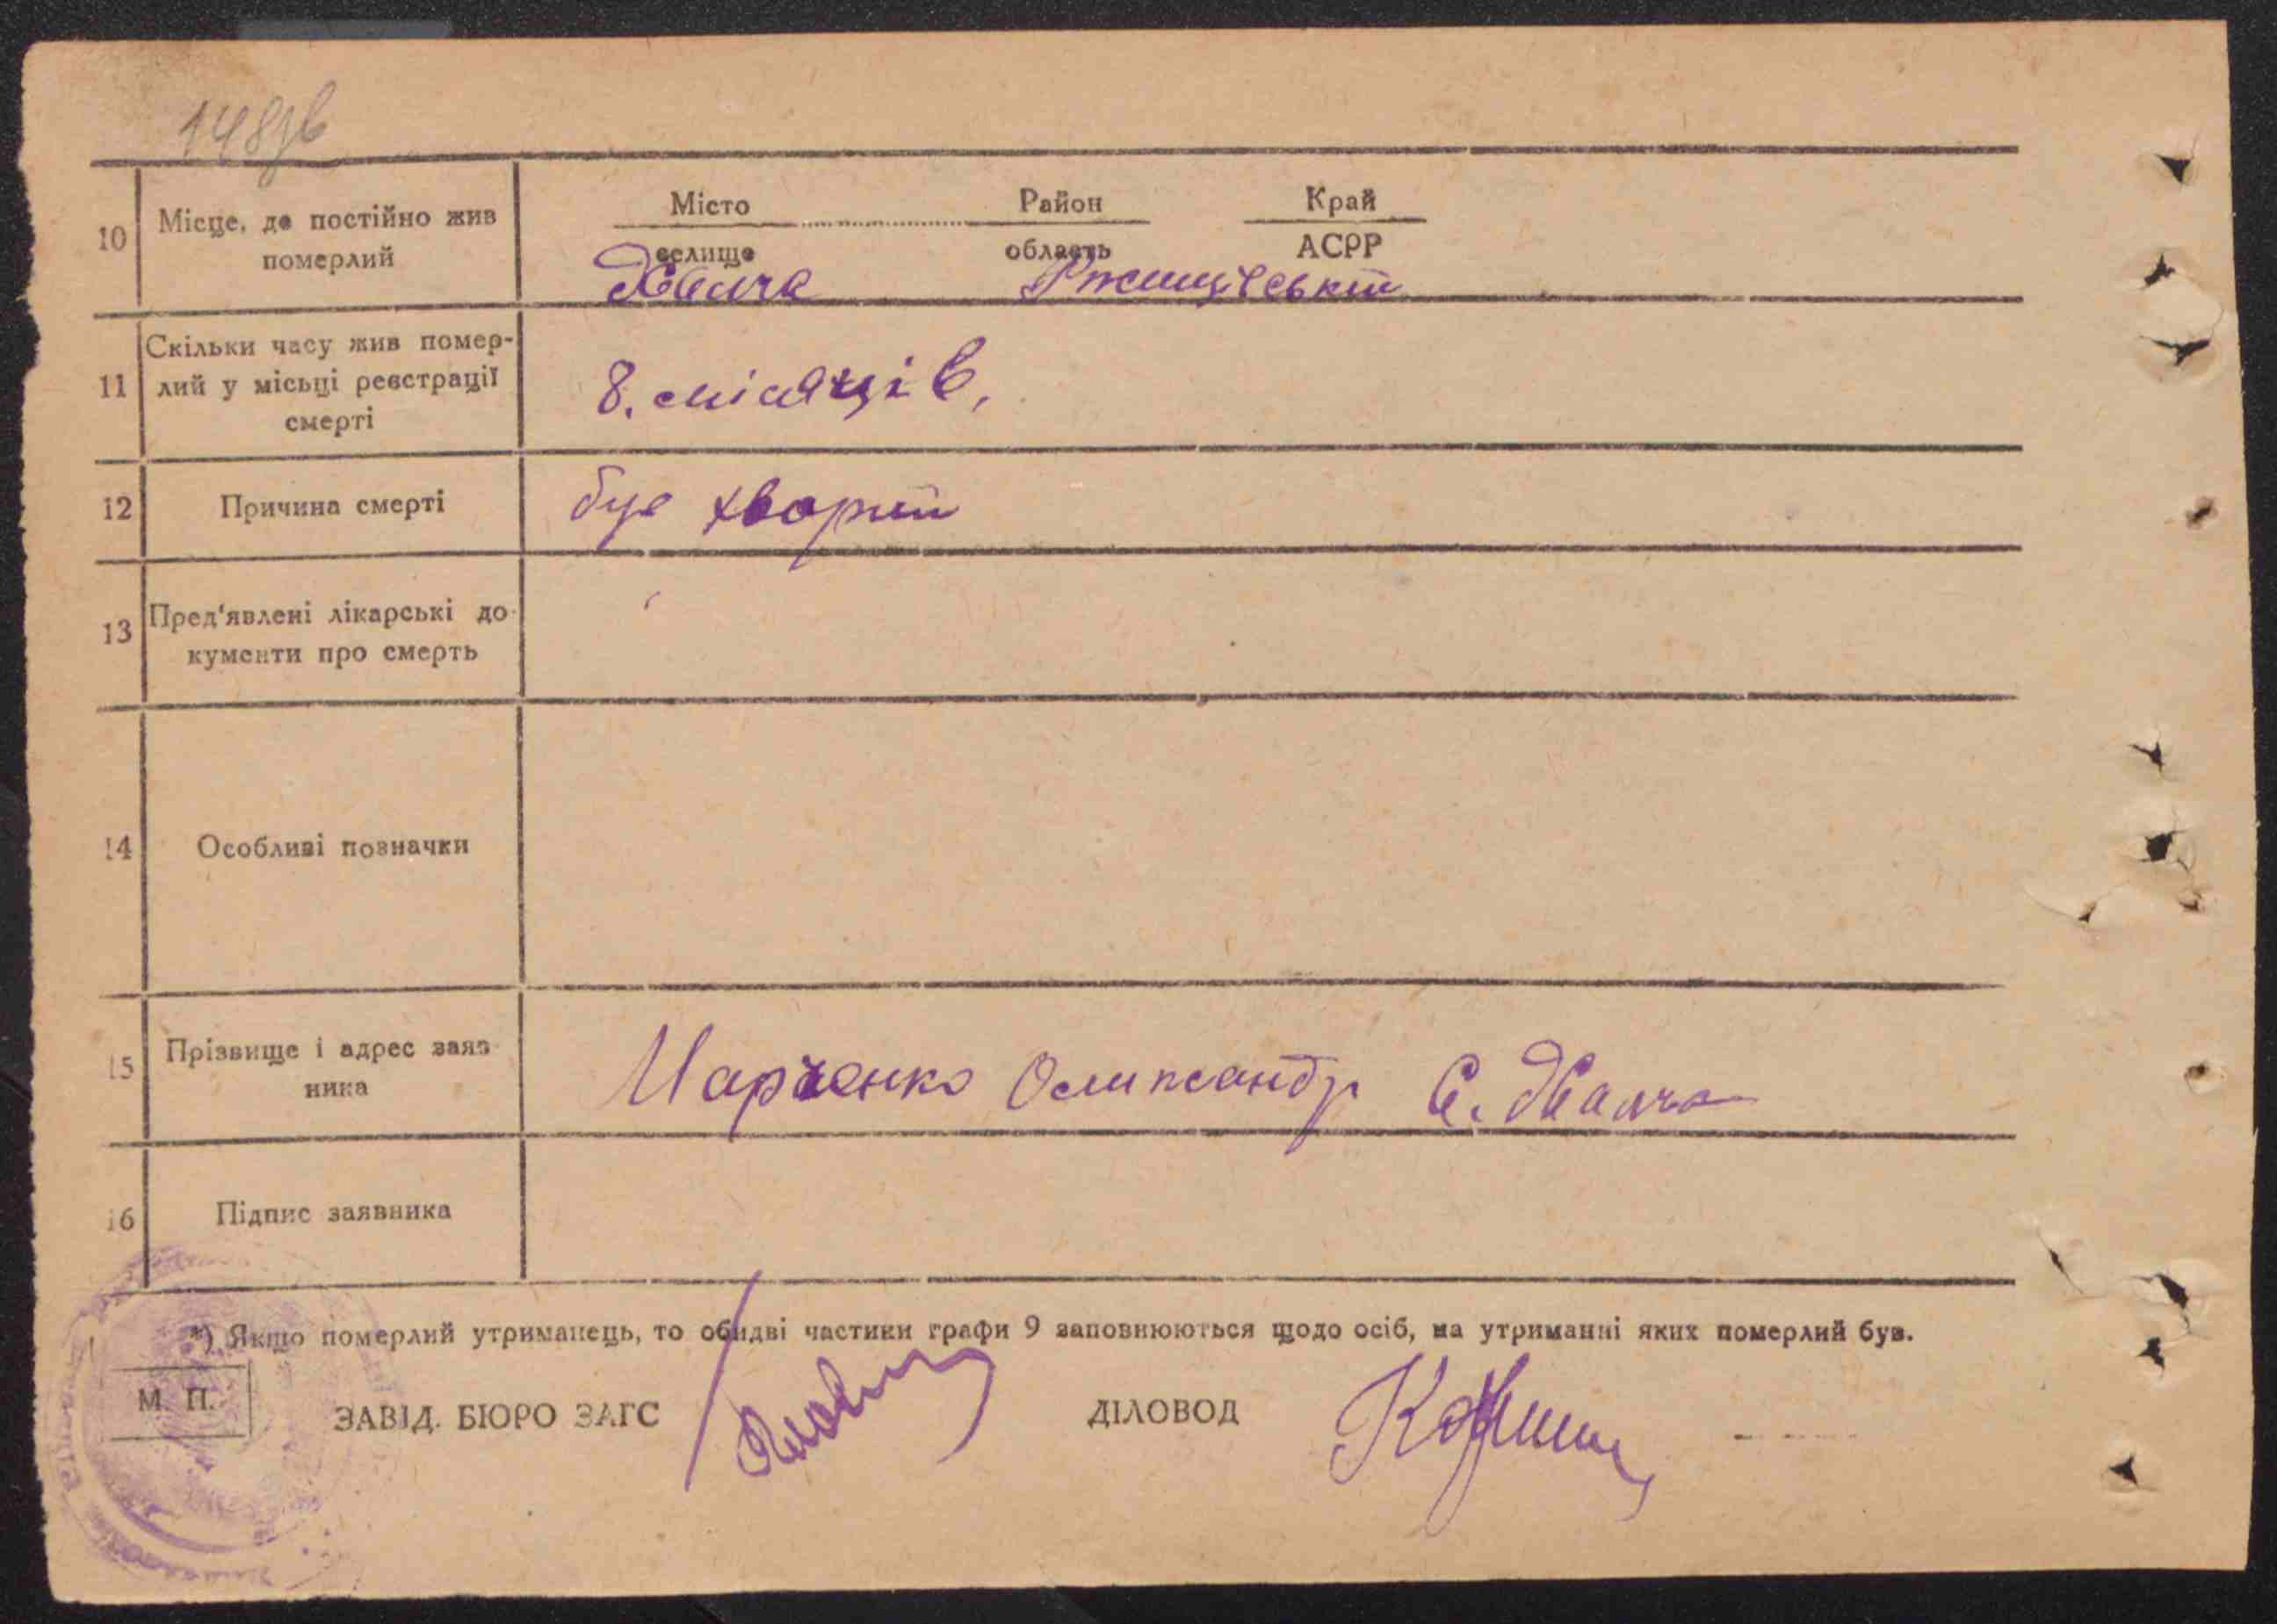 148зв
10 Місце, де постійно жив померлий
Місто Район Край
селище область АСРР
Жовча Ржищівській
11 Скільки часу жив помер-
лий у місьці реєстрації
смерті
8. місяців,
12 Причина смерті був хворий
13 Пред'явлені лікарські до-
кументи про смерть
14 Особливі позначки
15 Прізвище і адрес заяв
ника
Марченко Олександр С.
16 Підпис заявника
*) Якщо померлий утриманець, то обидві частини графи 9 заповнюються щодо осіб, на утриманні яких померлий був.
М. П.
ЗАВІД. БЮРО ЗАГС ДІЛОВОД